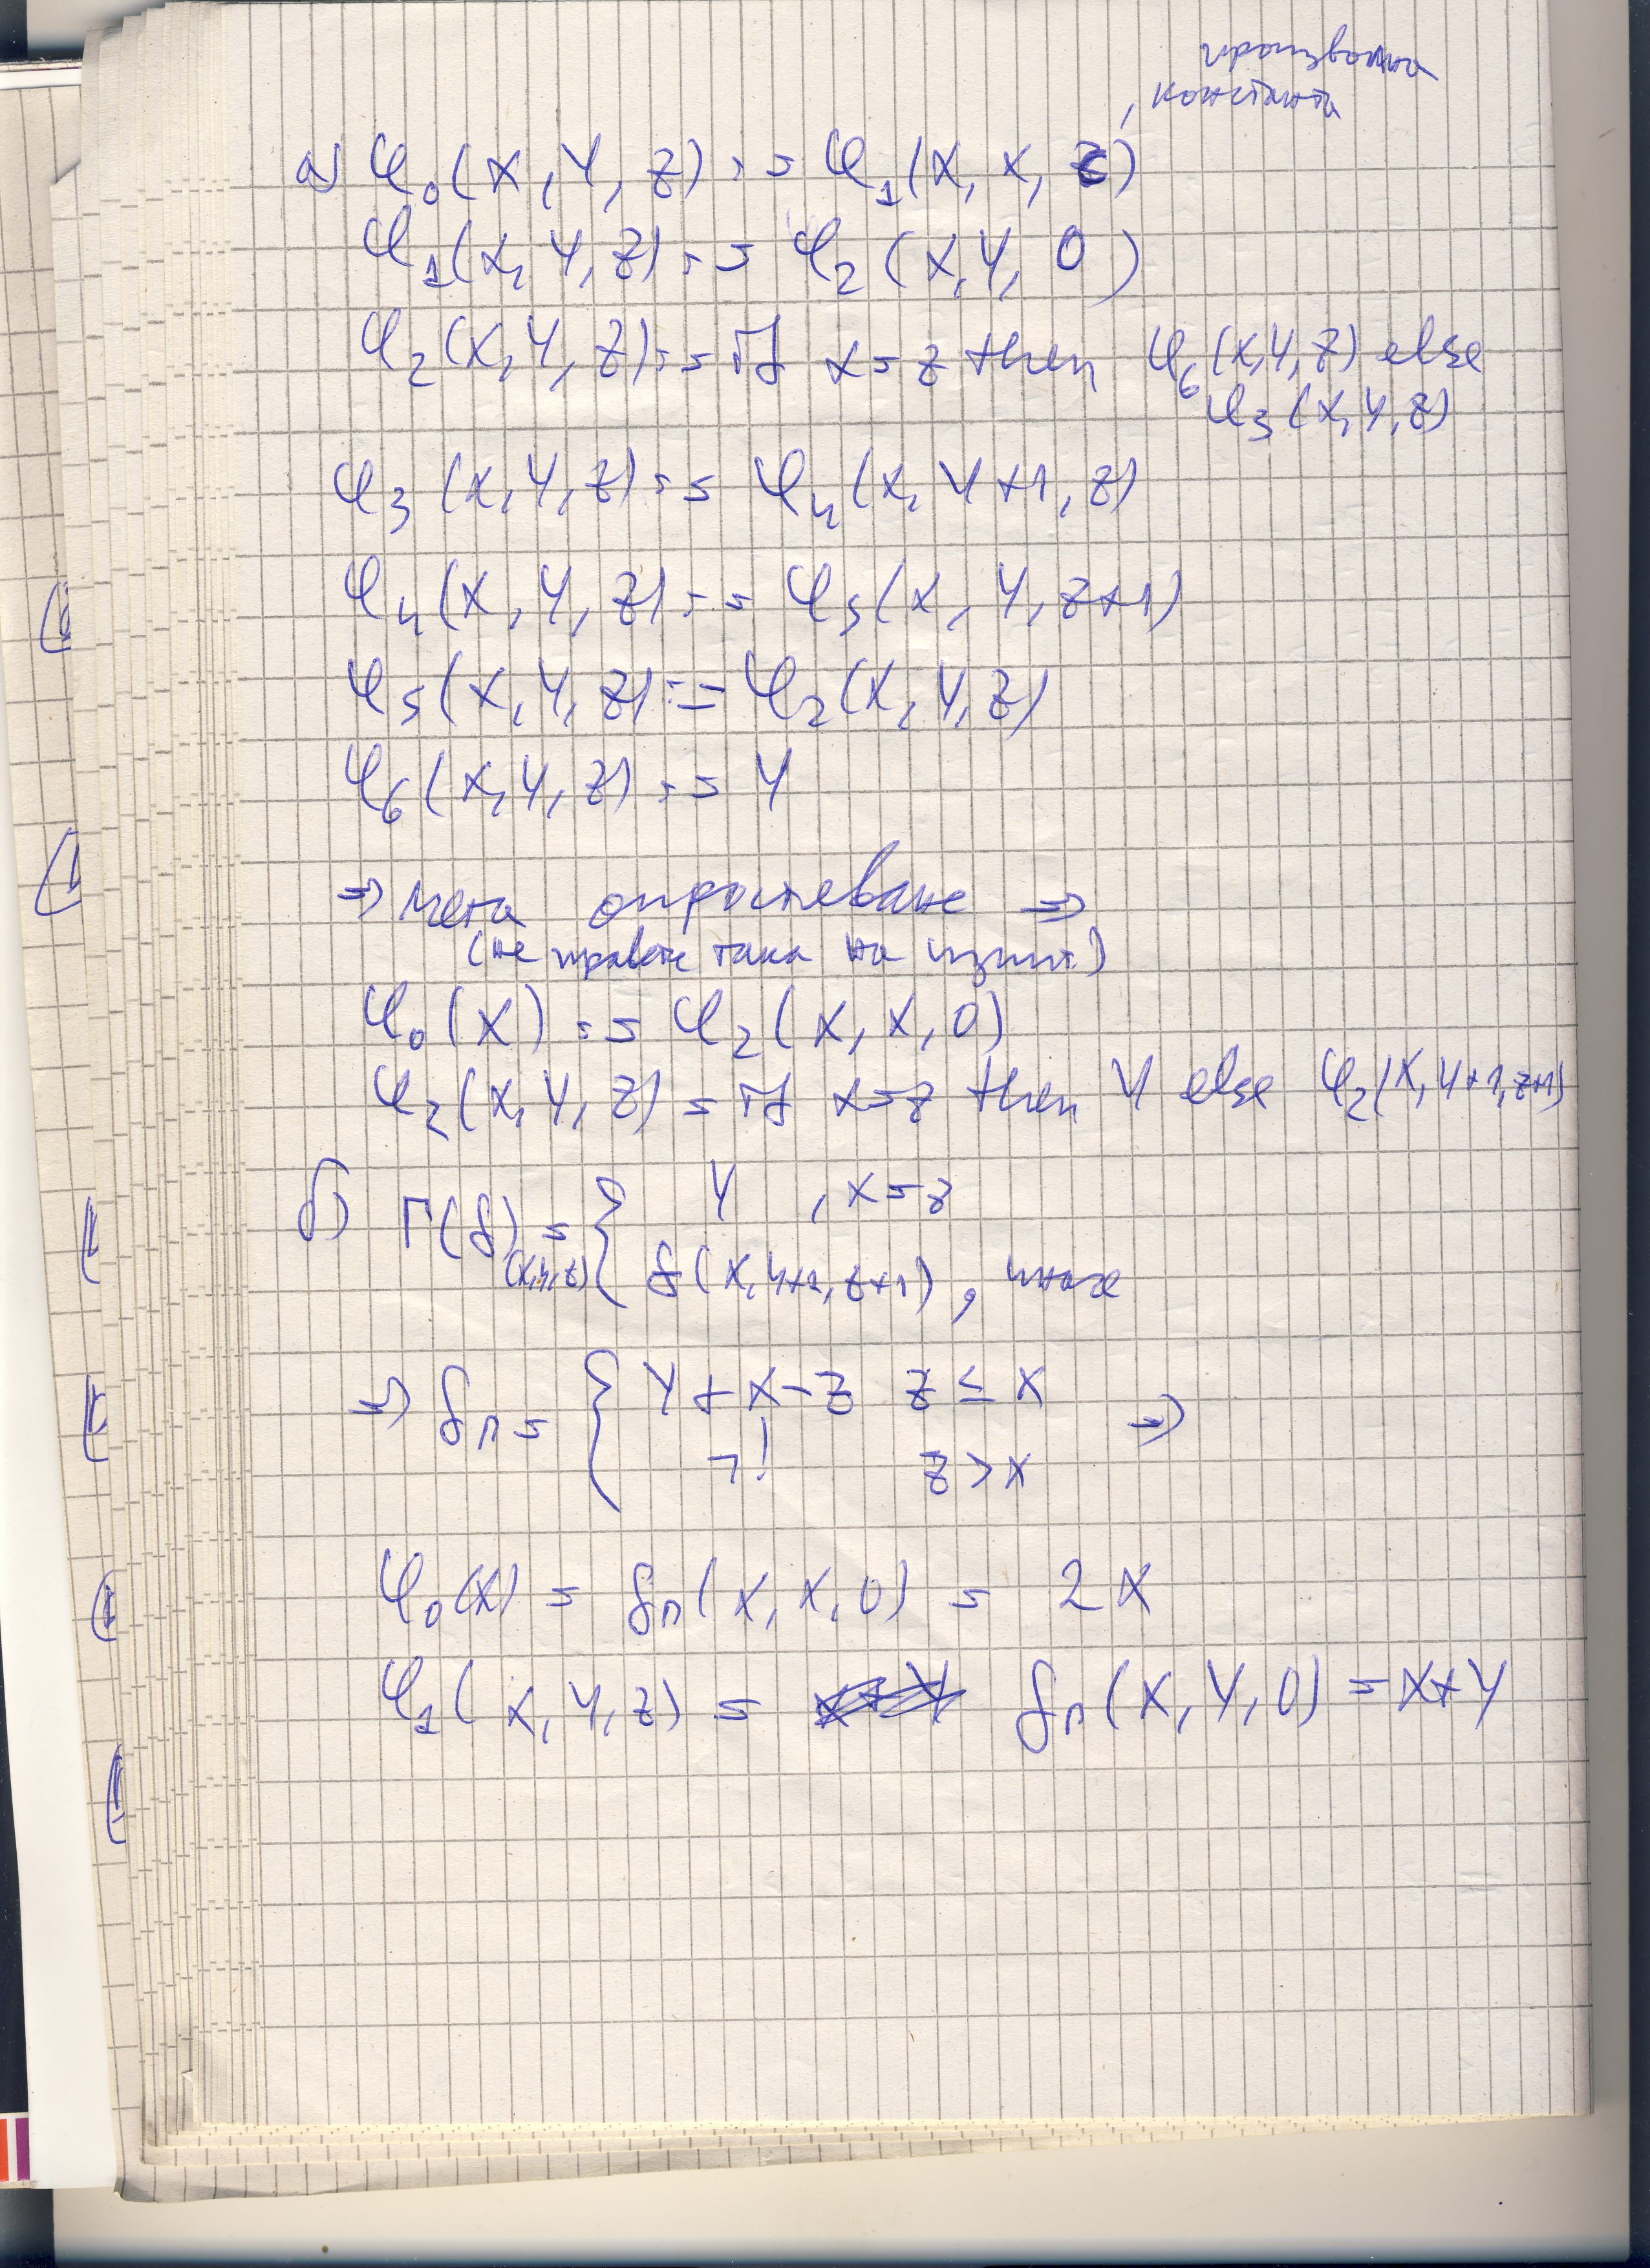 произволна
константа
а) φ₀(X, Y, Z) := φ₁(X, X, C)
φ₁(X, Y, Z) := φ₂(X, Y, 0)
φ₂(X, Y, Z) := if x = z then φ₆(X, Y, Z) else
φ₃(X, Y, Z)
φ₃(X, Y, Z) := φ₄(X, Y+1, Z)
φ₄(X, Y, Z) := φ₅(X, Y, Z+1)
φ₅(X, Y, Z) := φ₂(X, Y, Z)
φ₆(X, Y, Z) := Y
⇒ мега опростяване ⇒
(не правете така на изпит)
φ₀(X) := φ₂(X, X, 0)
φ₂(X, Y, Z) = if x = z then Y else φ₂(X, Y+1, Z+1)
б) Γ(f)(X, Y, Z) = { Y , x = z
f(X, Y+1, Z+1), иначе
⇒ f_Γ = { Y + X - Z z ≤ x ⇒
¬! z > x
φ₀(X) = f_Γ(X, X, 0) = 2X
φ₁(X, Y, Z) = f_Γ(X, Y, 0) = X + Y